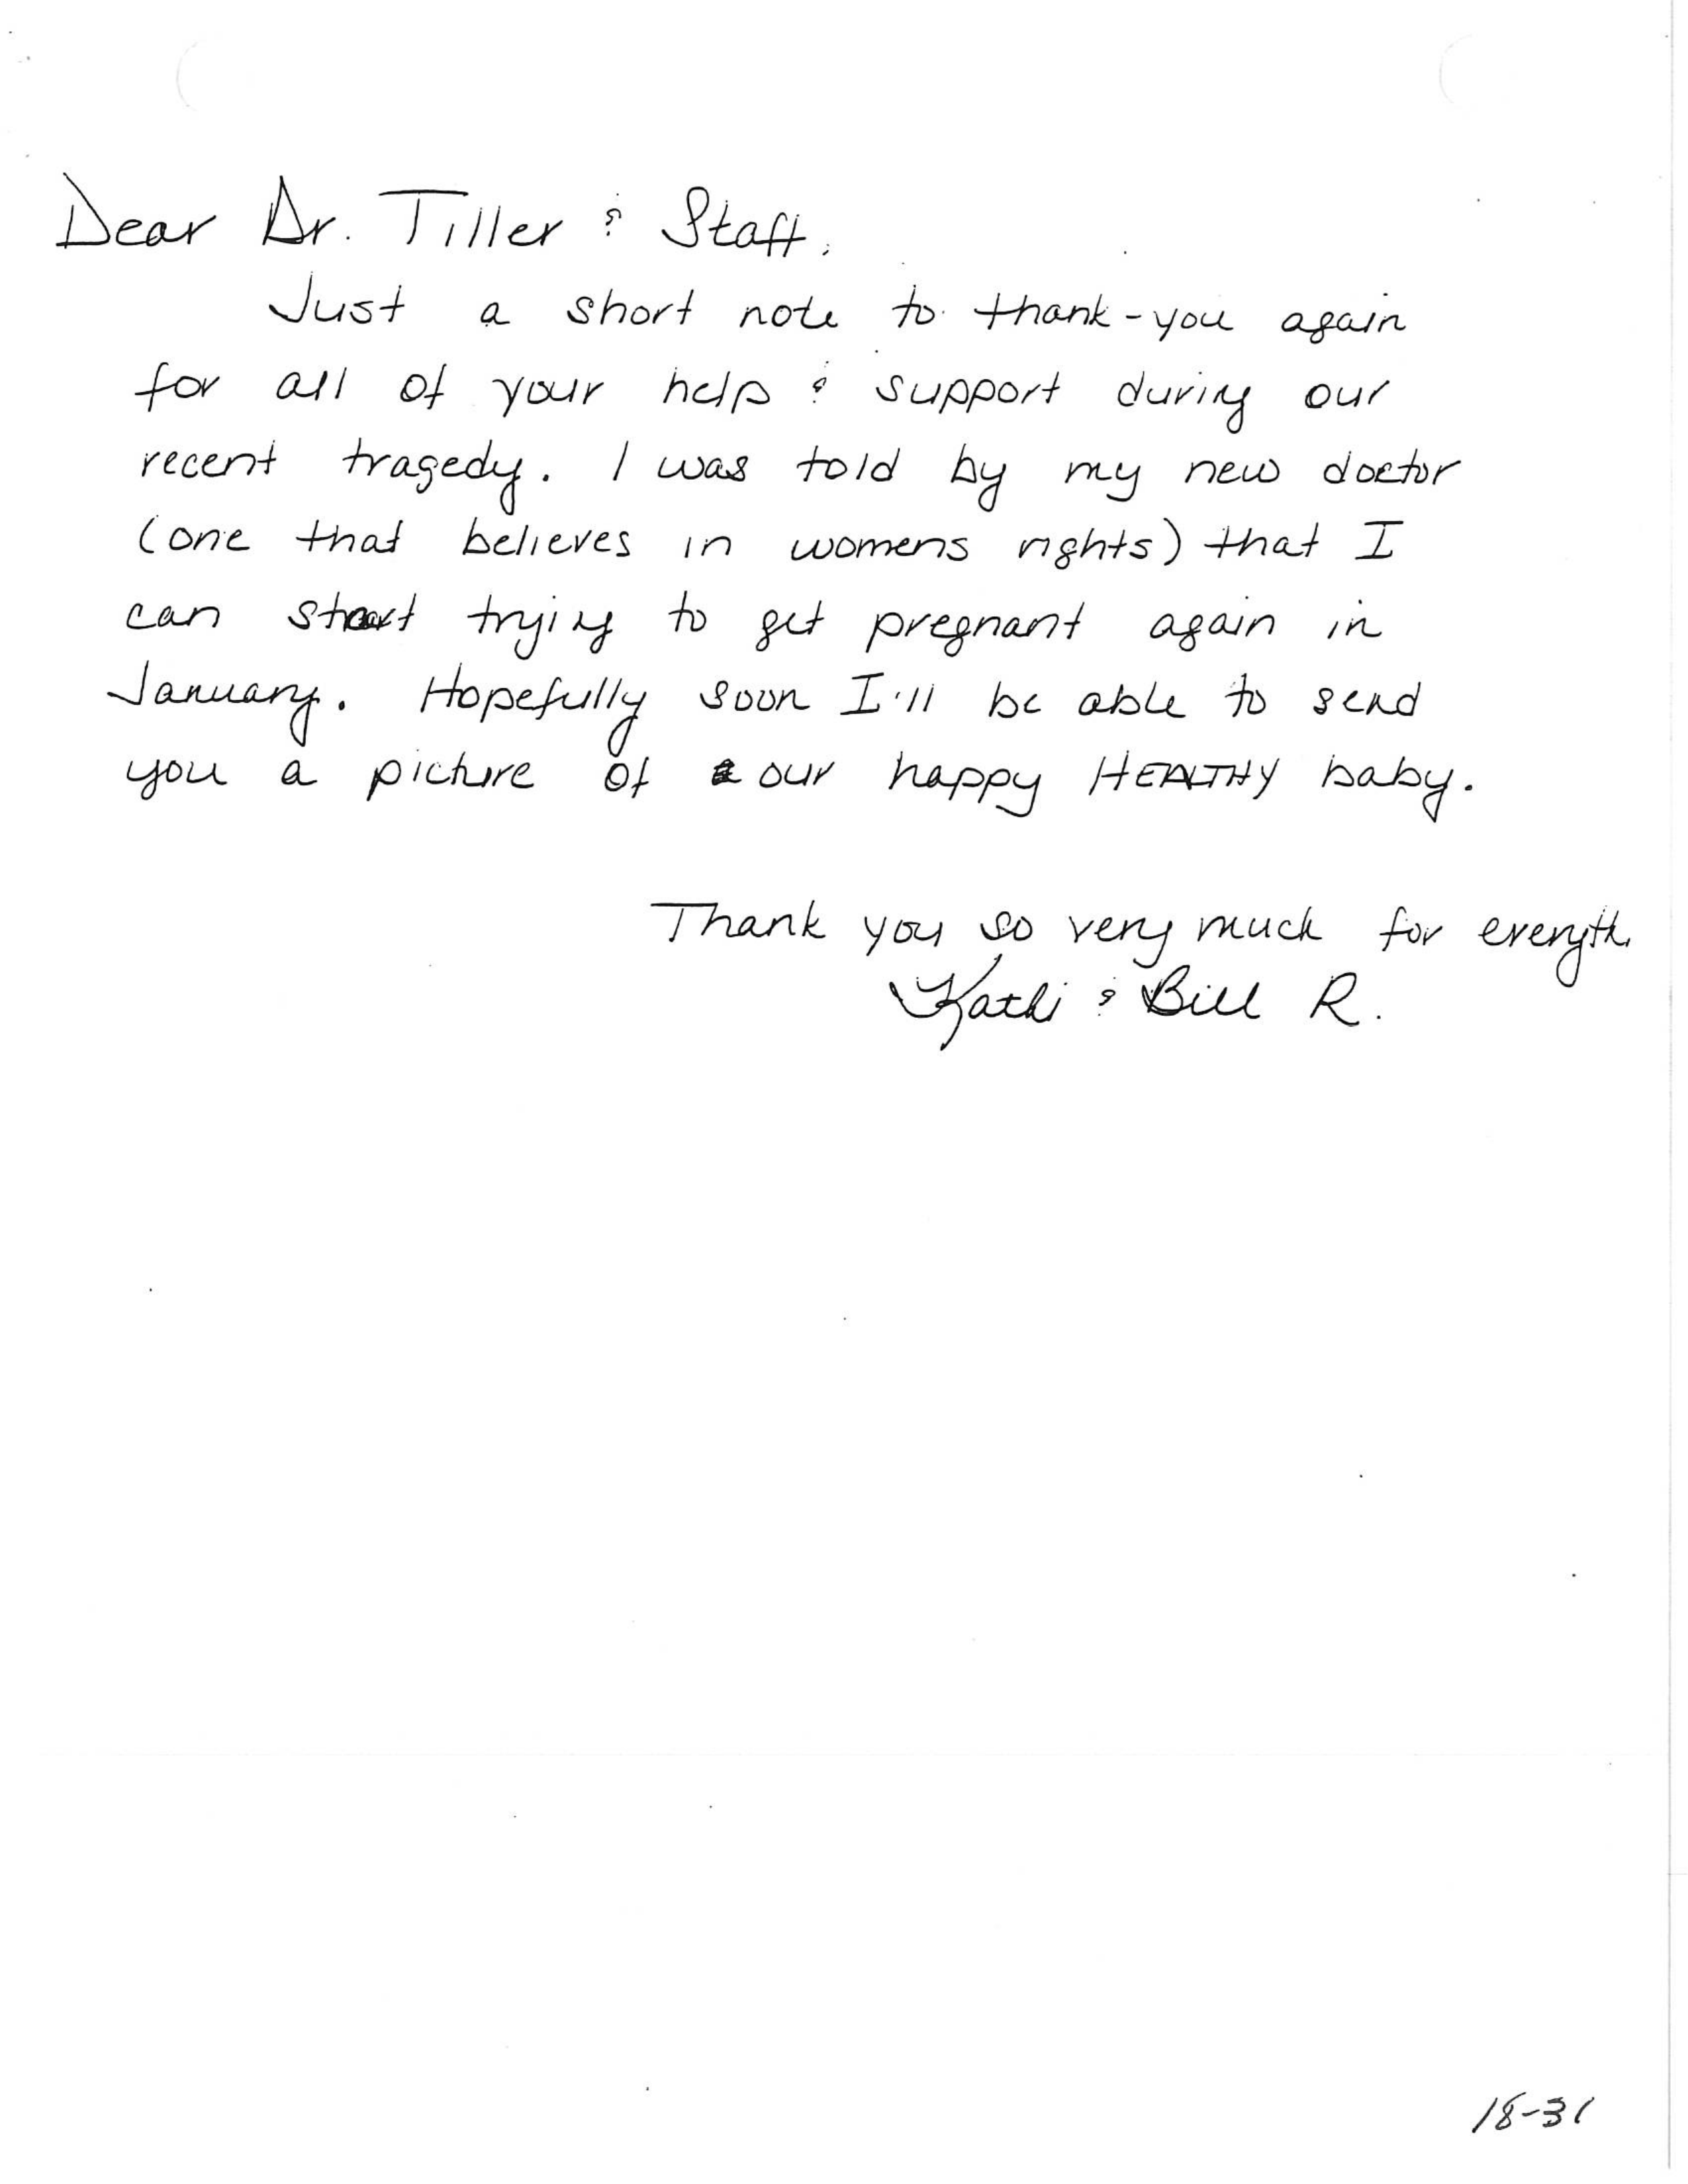 Dear Dr. Tiller & Staff,
Just a short note to thank-you again
for all of your help & support during our
recent tragedy. I was told by my new doctor
(one that believes in womens rights) that I
can start trying to get pregnant again in
January. Hopefully soon I'll be able to send
you a picture of our happy HEALTHY baby.
Thank you so very much for everyth
Kathi & Bill R.
18-31